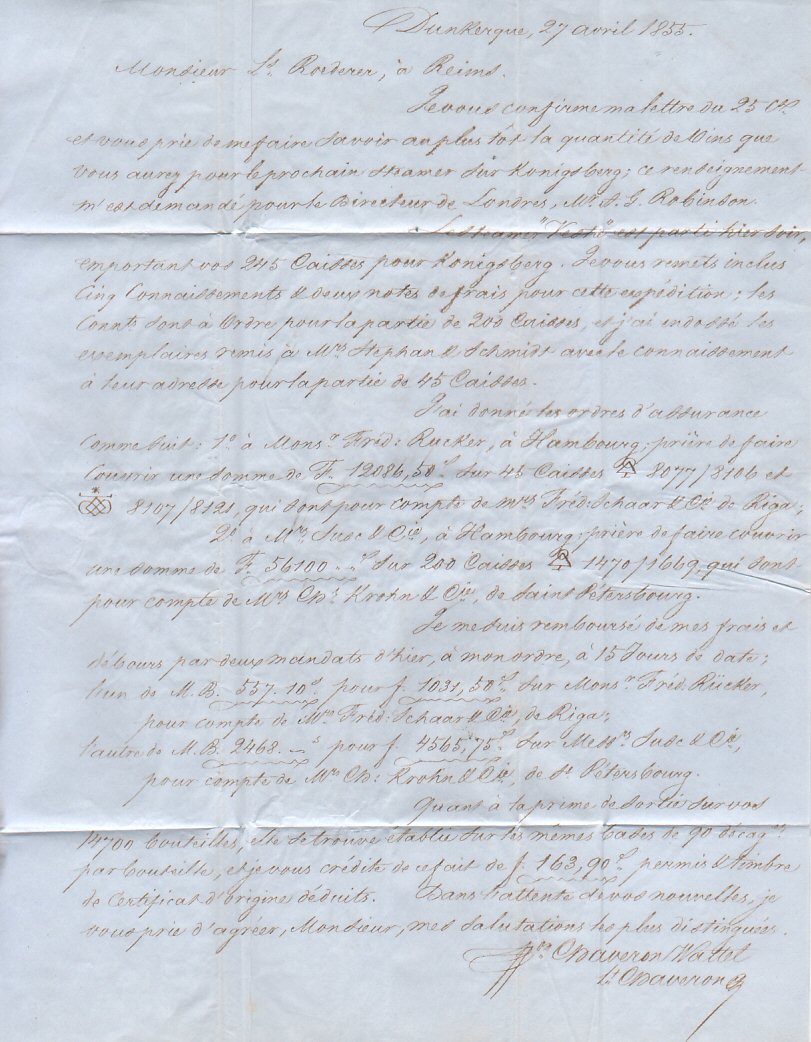 Dunkerque, 27 avril 1855.
Monsieur Ls. Roederer, à Reims.
Je vous confirme ma lettre du 25 Ct.
et vous prie de me faire savoir au plus tôt la quantité de Vins que
vous aurez pour le prochain steamer sur Konigsberg; ce renseignement
m'est demandé pour le Directeur de Londres, Mr. A. G. Robinson.
Le steamer " " est parti hier soir,
emportant vos 245 Caisses pour Konigsberg. Je vous remets inclus
Cinq Connaissements & deux notes de frais pour cette expédition; les
Connts. sont à Ordre pour la partie de 200 Caisses, et j'ai endossé les
exemplaires remis à Mrs Stephan & Schmidt avec le connaissement
à leur adresse pour la partie de 45 Caisses.
J'ai donné les ordres d'assurance
Comme suit: 1o. à Monsr. Fréd: Rücker, à Hambourg, prière de faire
Couvrir une somme de F. 12086,50 c. sur 45 Caisses 8077/8106 et
8107/8121, qui sont pour compte de Mrs Fréd: Schaar & Cie de Riga;
2o. à Mrs. Suse & Cie, à Hambourg, prière de faire couvrir
une somme de F. 56100 " " c. sur 200 Caisses 1470/1669, qui sont
pour compte de Mrs Chs Krohn & Cie, de Saint Pétersbourg.
Je me suis remboursé de mes frais et
débours par deux mandats d'hier, à mon ordre, à 15 Jours de date;
l'un de M.B. 557.10 s. pour f. 1031,50 c. sur Monsr. Fréd: Rücker,
pour compte de Mrs Fréd: Schaar & Cie, de Riga;
l'autre de M.B. 2468. " s. pour f. 4565,75 c. sur Messrs. Suse & Cie,
pour compte de Mrs Ch: Krohn & Cie, de St. Pétersbourg.
Quant à la prime de sortie sur vos
14700 bouteilles, elle se trouve établie sur les mêmes bases de 90 décagr.
par bouteille, et je vous crédite de ce fait de f. 163,90 c. permis & timbre
de Certificat d'origine déduits. Dans l'attente de vos nouvelles, je
vous prie d'agréer, Monsieur, mes salutations les plus distinguées.
Chaveron Wattel
Chaveron